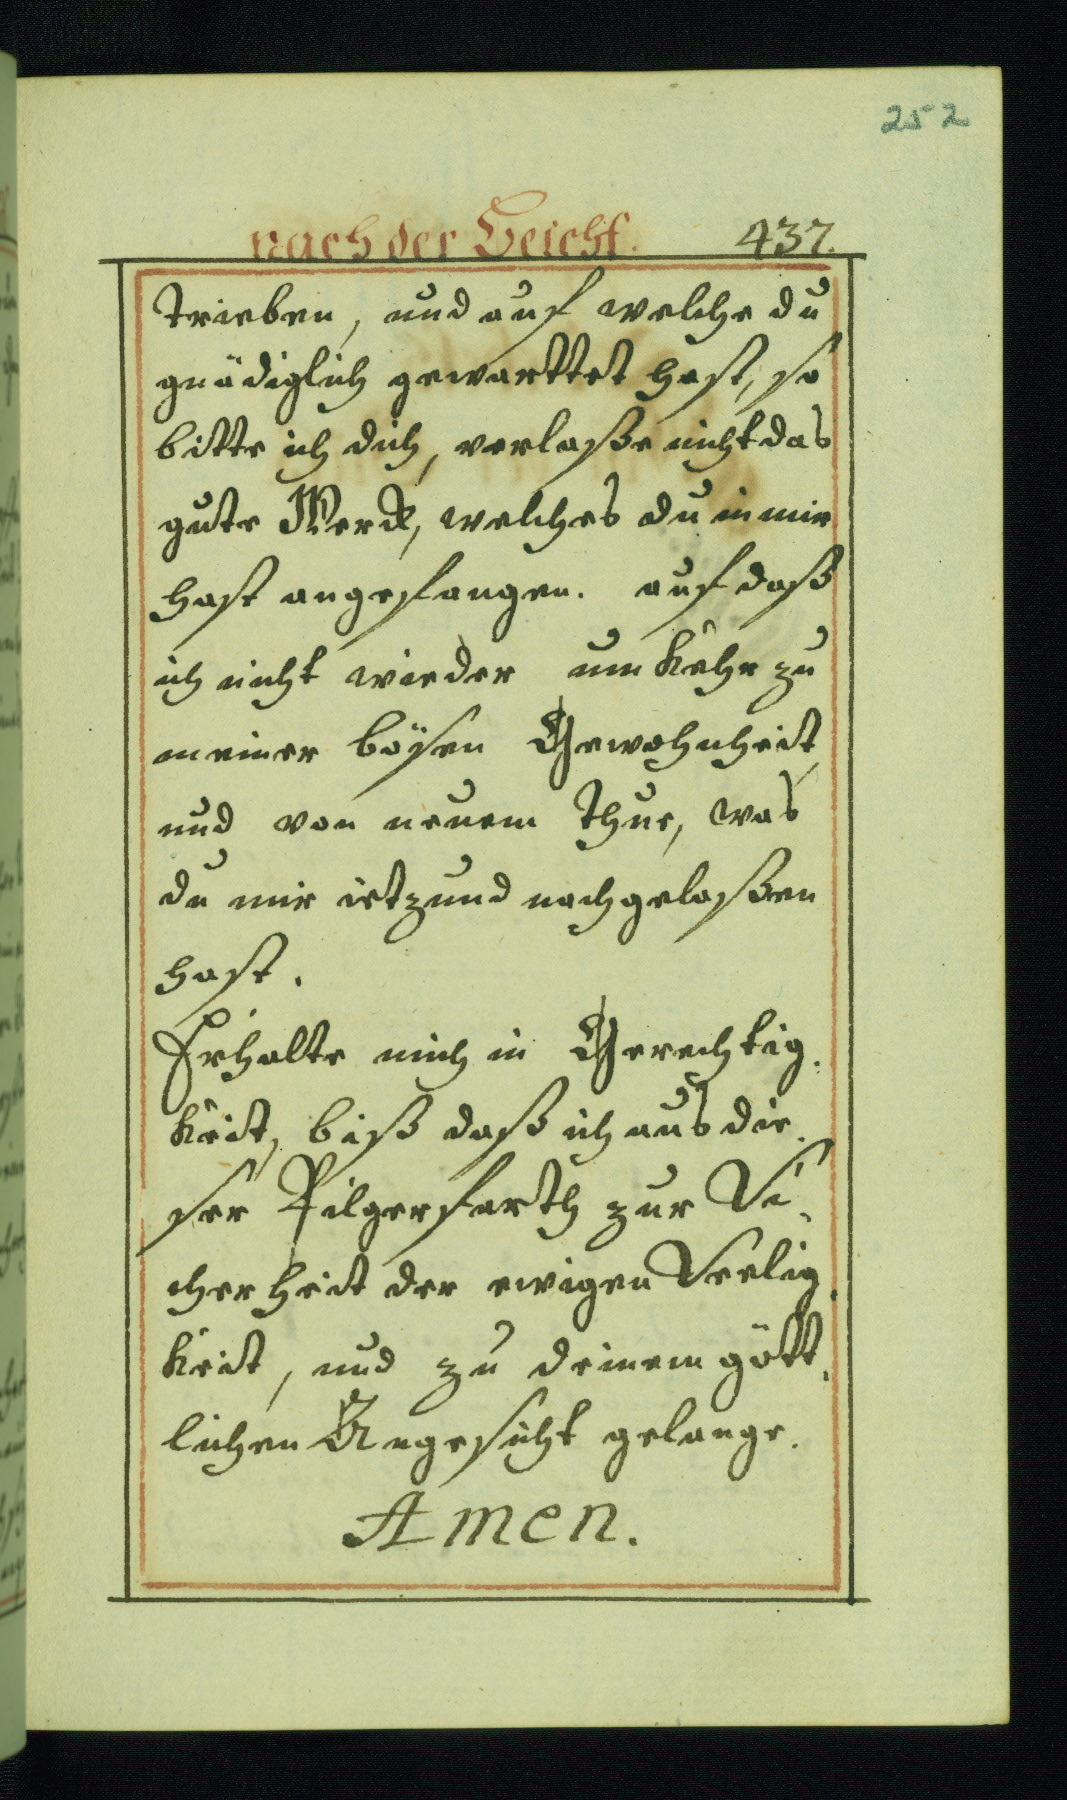 252
nach der Beicht. 437.
trieben, und auf welche du
gnädiglich gewarttet hast, so
bitte ich dich, verlaße nicht das
gute Werck, welches du in mir
hast angefangen. auf daß
ich nicht wieder um kehr zu
meiner bösen Gewohnheit,
und von neuem thue, was
du mir ietzund nachgelaßen
hast.
Erhalte mich in Gerechtig,
keit, biß daß ich aus die,
ser Pilgerfarth zur Si,
cherheit der ewigen Seelig,
keit, und zu deinem gött,
lichen Angesicht gelange.
Amen.